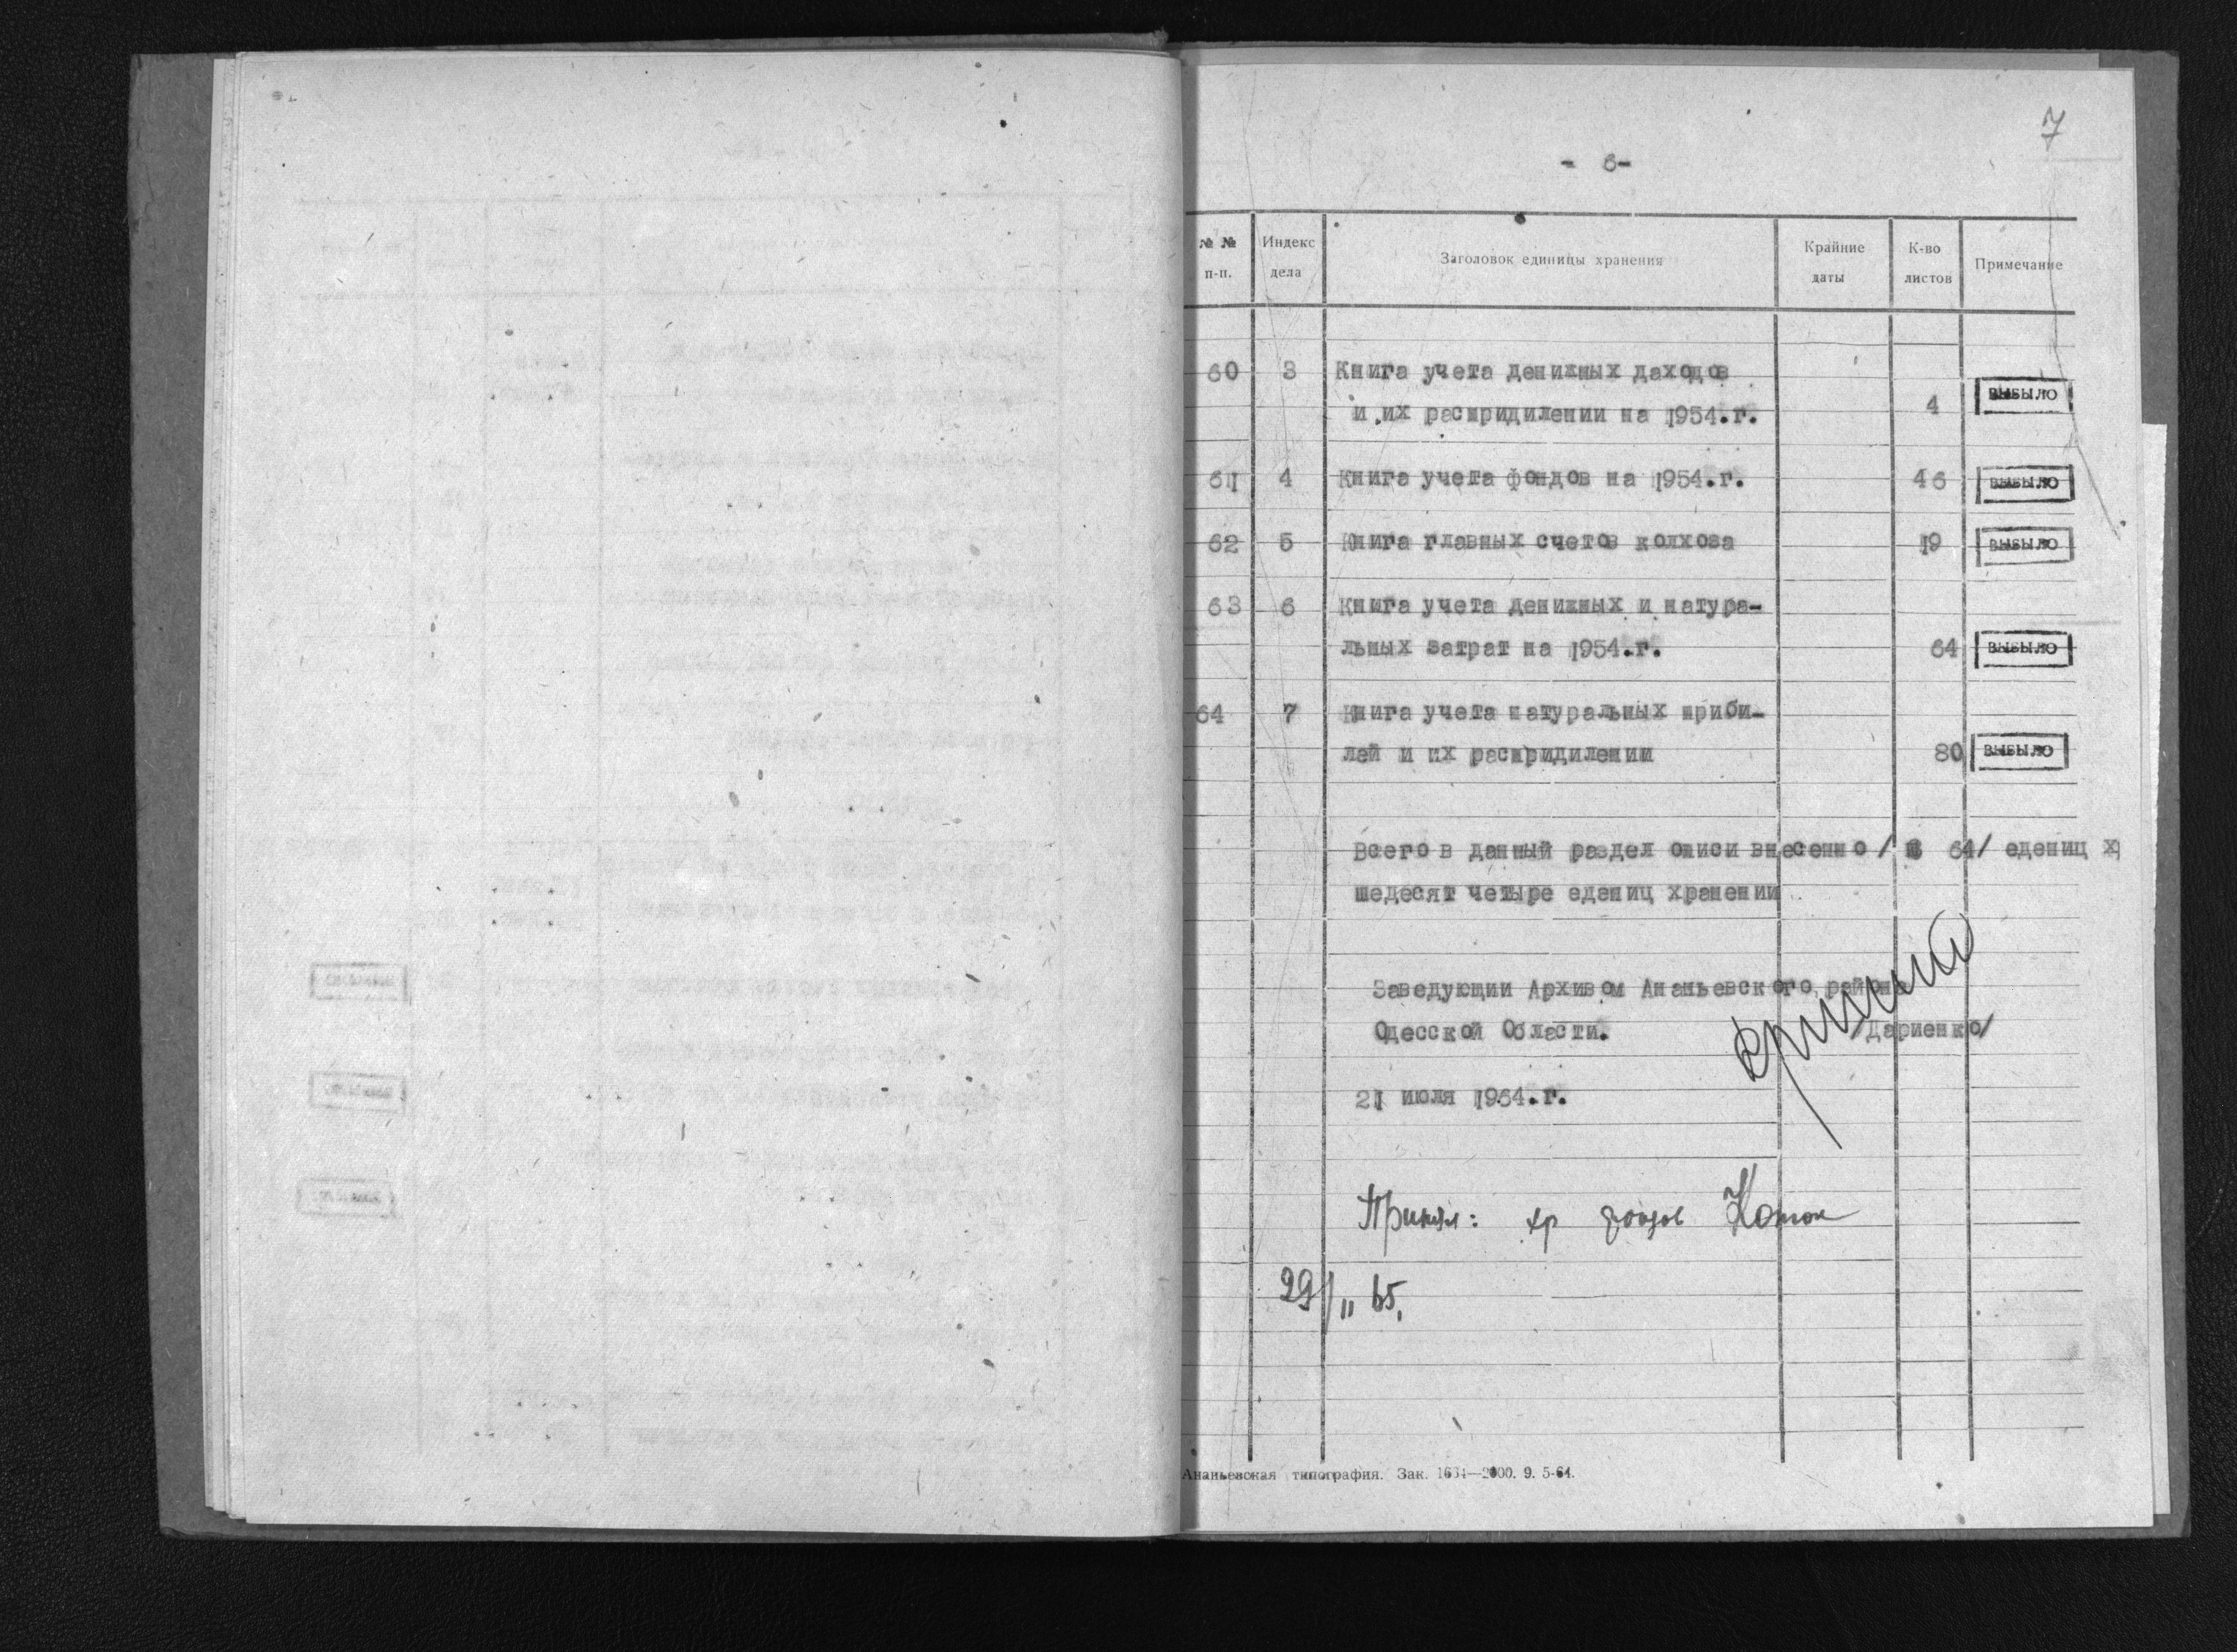 7
- 6-
№ № Индекс Заголовок единицы хранения Крайние К-во Примечание
п-п. дела даты листов
60 3 Книга учета денижных даходов
и их распридилении на 1954.г. 4 ВЫБЫЛО
61 4 Книга учета фондов на 1954.г. 46 ВЫБЫЛО
62 5 Книга главных счетов колхоза 19 ВЫБЫЛО
63 6 Книга учета денижных и натура-
льных затрат на 1954.г. 64 ВЫБЫЛО
64 7 Книга учета натуральных приби-
лей и их распридилении 80 ВЫБЫЛО
Всего в данный раздел описи внесенно / 64/ едениц х
шедесят четыре едениц хранении
Заведующии Архивом Ананьевского района
Одесской Области. /Дариенко/
21 июля 1964.г.
Принял: хр фондов
29/11 65.
Ананьевская типография. Зак. 1634—2000. 9. 5-64.